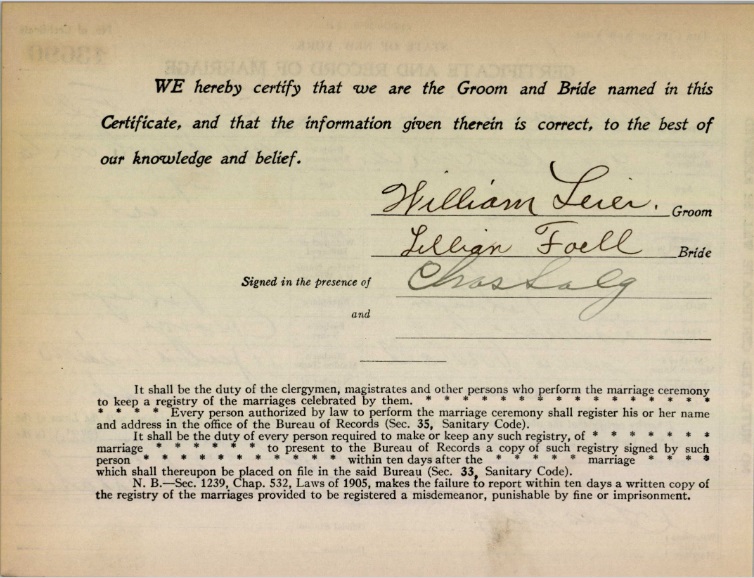 WE hereby certify that we are the Groom and Bride named in this
Certificate, and that the information given therein is correct, to the best of
our knowledge and belief.
William Leier. Groom
Lillian Foell Bride
Signed in the presence of Chas
and
It shall be the duty of the clergymen, magistrates and other persons who perform the marriage ceremony
to keep a registry of the marriages celebrated by them. * * * * * * * * * * * * * * * *
* * * * Every person authorized by law to perform the marriage ceremony shall register his or her name
and address in the office of the Bureau of Records (Sec. 35, Sanitary Code).
It shall be the duty of every person required to make or keep any such registry, of * * * * * * *
marriage * * * * * * to present to the Bureau of Records a copy of such registry signed by such
person * * * * * * * * * * * within ten days after the * * * * * marriage * * * *
which shall thereupon be placed on file in the said Bureau (Sec. 33, Sanitary Code).
N. B.—Sec. 1239, Chap. 532, Laws of 1905, makes the failure to report within ten days a written copy of
the registry of the marriages provided to be registered a misdemeanor, punishable by fine or imprisonment.